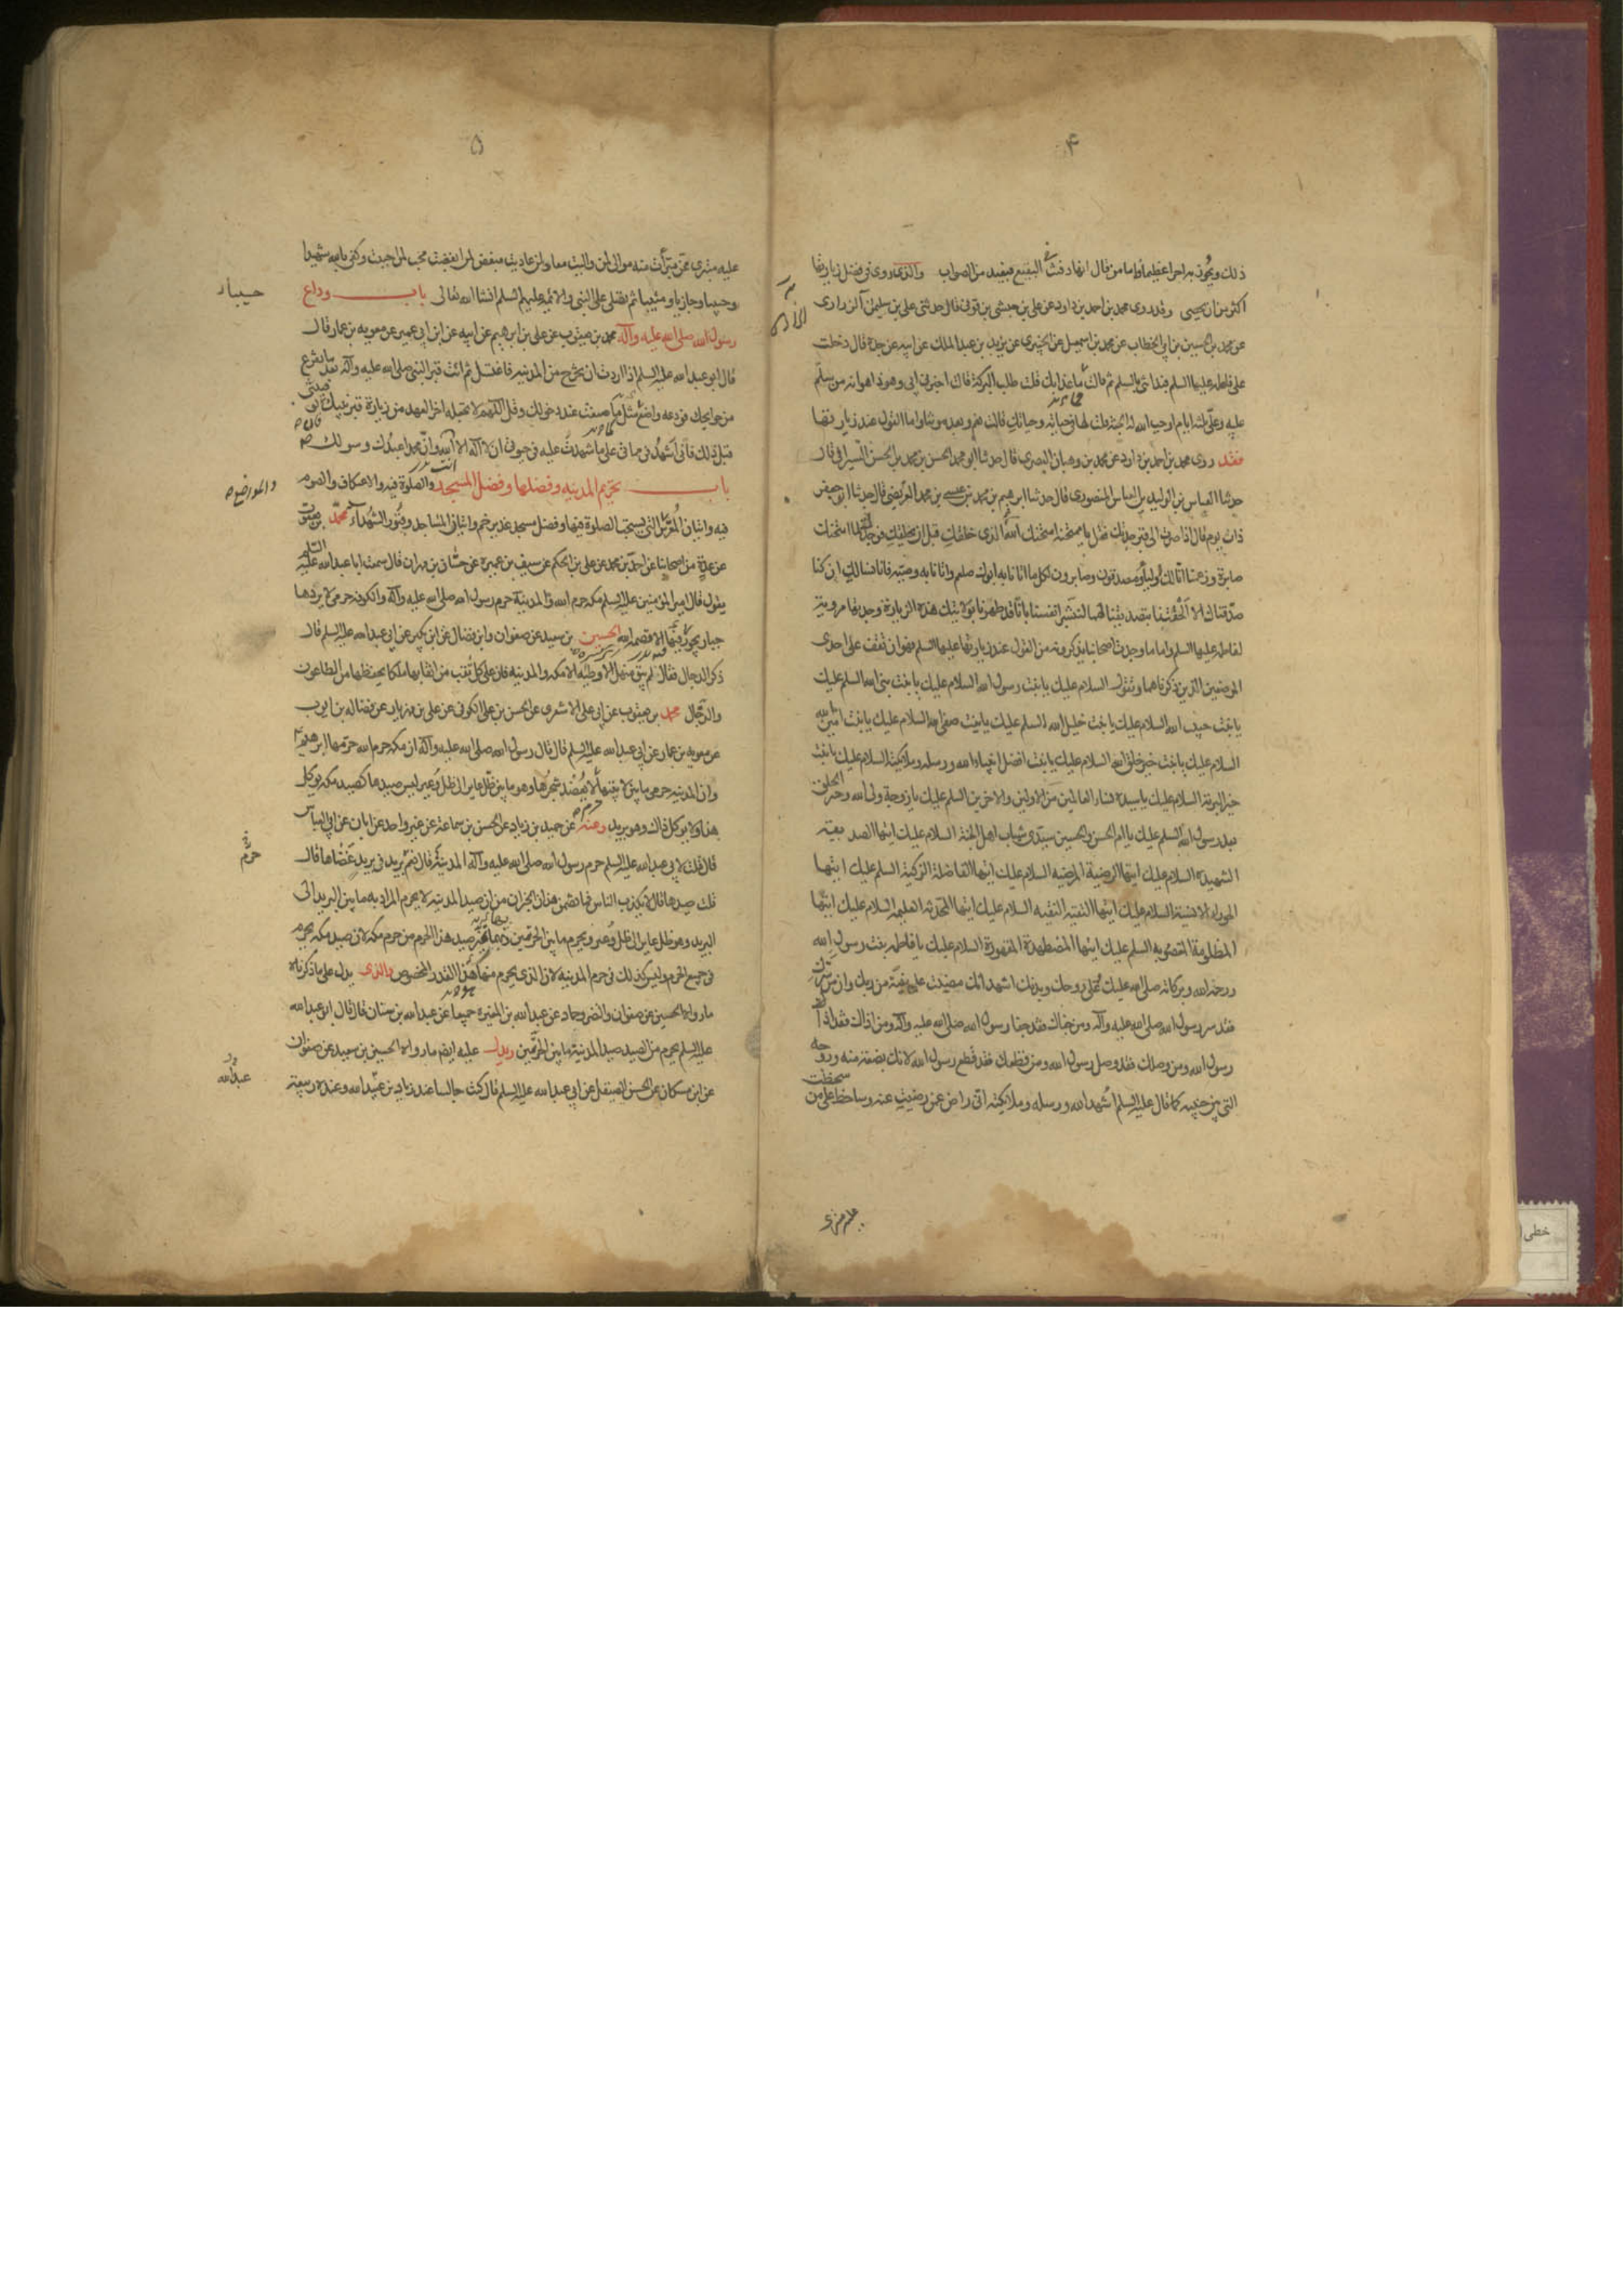 ۴
ذلك ويحوز به اجرا عظيما فاما من قال انها دفنت في البقيع فبعيد من الصواب والذي روي في فضل زيارتها
اكثر من ان يحصى وقد روى محمد بن احمد بن داود عن علي بن حبشي بن قوني قال حدثني علي بن سليمن الزراري
عن محمد بن الحسين بن ابي الخطاب عن محمد بن اسمعيل عن الخيبري عن يزيد بن عبد الملك عن ابيه عن جده قال دخلت
على فاطمة عليها السلم فبداتني بالسلم ثم قالت ما غدا بك قلت طلب البركة قالت اخبرني ابي وهو ذا هو انه من سلم
عليه وعلي ثلثة ايام اوجب الله له الجنة قلت لها في حياته وحياتك قالت نعم وبعد موتنا واما القول عند زيارتها
فقد روى محمد بن احمد بن داود عن محمد بن وهبان البصري قال حدثنا ابو محمد الحسن بن محمد بن الحسن السيرافي قال
حدثنا العباس بن الوليد بن العباس المنصوري قال حدثنا ابرهيم بن محمد بن عيسى بن محمد العريضي قال حدثنا ابو جعفر
ذات يوم قال اذا صرت الى قبر جدتك فقل يا ممتحنة امتحنك الله الذي خلقك قبل ان يخلقك فوجدك لما امتحنك
صابرة وزعمنا انا لك اولياء ومصدقون وصابرون لكل ما اتانا به ابوك صلعم واتانا به وصيه فانا نسالك ان كنا
صدقناك الا الحقتنا بتصديقنا لهما لنبشر انفسنا بانا قد طهرنا بولايتك هذه الزيارة وجدتها مروية
لفاطمة عليها السلم واما ما وجدت اصحابنا يذكرونه من القول عند زيارتها عليها السلم فهو ان تقف على احدى
الموضعين الذين ذكرناهما وتقول السلام عليك يا بنت رسول الله السلام عليك يا بنت نبي الله السلم عليك
يا بنت حبيب الله السلام عليك يا بنت خليل الله السلم عليك يا بنت صفي الله السلام عليك يا بنت امين الله
السلام عليك يا بنت خير خلق الله السلام عليك يا بنت افضل انبياء الله ورسله وملائكته السلام عليك يا بنت
خير البرية السلام عليك يا سيدة نساء العالمين من الاولين والاخرين السلم عليك يا زوجة ولي الله وخير الخلق
بعد رسول الله السلم عليك يا ام الحسن والحسين سيدي شباب اهل الجنة السلام عليك ايتها الصديقة
الشهيدة السلام عليك ايتها الرضية المرضية السلام عليك ايتها الفاضلة الزكية السلم عليك ايتها
الحوراء الانسية السلام عليك ايتها التقية النقية السلام عليك ايتها المحدثة العليمة السلام عليك ايتها
المظلومة المغصوبة السلم عليك ايتها المضطهدة المقهورة السلام عليك يا فاطمة بنت رسول الله
ورحمة الله وبركاته صلى الله عليك وعلى روحك وبدنك اشهد انك مضيت على بينة من ربك وان من سرك
فقد سر رسول الله صلى الله عليه وآله ومن جفاك فقد جفا رسول الله صلى الله عليه وآله ومن اذاك فقد اذا
رسول الله ومن وصلك فقد وصل رسول الله ومن قطعك فقد قطع رسول الله لانك بضعة منه وروحه
التي بين جنبيه كما قال عليه السلم اشهد الله ورسله وملائكته اني راض عمن رضيت عنه وساخط على من سخطت
۵
عليه متبرئ ممن تبرأت منه موال لمن واليت معاد لمن عاديت مبغض لمن ابغضت محب لمن احببت وكفى بالله شهيدا
وحسيبا وجازيا ومثيبا ثم تصلي على النبي والائمة عليهم السلم انشا الله تعالى باب وداع
رسول الله صلى الله عليه وآله محمد بن يعقوب عن علي بن ابرهيم عن ابيه عن ابن ابي عمير عن معوية بن عمار قال
قال ابو عبد الله عليه السلم اذا اردت ان تخرج من المدينة فاغتسل ثم ائت قبر النبي صلى الله عليه وآله بعد ما تفرغ
من حوايجك فودعه واصنع مثل ما صنعت عند دخولك وقل اللهم لا تجعله اخر العهد من زيارة قبر نبيك فان توفيتني
قبل ذلك فاني اشهد في مماتي على ما شهدت عليه في حيوتي ان لا اله الا انت وان محمدا عبدك ورسولك
باب تحريم المدينة وفضلها وفضل المسجد والصلوة فيه والاعتكاف والصوم
فيه واتيان المعرس التي يستحب الصلوة فيها وفضل مسجد غدير خم واتيان المساجد وقبور الشهداء محمد بن يعقوب
عن عدة من اصحابنا عن احمد بن محمد عن علي بن الحكم عن سيف بن عميرة عن حسان بن مهران قال سمعت ابا عبد الله عليه السلم
يقول قال امير المؤمنين عليه السلم مكة حرم الله والمدينة حرم رسول الله صلى الله عليه وآله والكوفة حرمي لا يريدها
جبار يجور فيها الا قصمه الله الحسين بن سعيد عن صفوان وابن فضال عن ابن بكير عن ابي عبد الله عليه السلم قال
ذكر الدجال فقال لم يبق منهل الا وطئه الا مكة والمدينة فان على كل نقب من انقابهما ملكا يحفظهما من الطاعون
والدجال محمد بن يعقوب عن ابي علي الاشعري عن الحسن بن علي الكوفي عن علي بن مهزيار عن فضالة بن ايوب
عن معوية بن عمار عن ابي عبد الله عليه السلم قال قال رسول الله صلى الله عليه وآله ان مكة حرم الله حرمها ابرهيم
وان المدينة حرمي ما بين لابتيها لا يعضد شجرها وهو ما بين ظل عاير الى ظل وعير ليس صيدها كصيد مكة يوكل
هذا ولا يوكل ذاك وهو بريد وعنه عن حميد بن زياد عن الحسن بن سماعة عن غير واحد عن ابان عن ابي العباس
قال قلت لابي عبد الله عليه السلم حرم رسول الله صلى الله عليه وآله المدينة قال نعم بريد في بريد عضاها قال
قلت صيدها قال لا يكذب الناس فما تضمن هذان الخبران من ان صيد المدينة لا يحرم المراد به ما بين البريد الى
البريد وهو ظل عاير الى ظل وعير ويحرم ما بين الحرتين صيد هذا الحرم من حرم مكة لان صيد مكة يحرم
في جميع الحرم وليس كذلك في حرم المدينة لان الذي يحرم منها هو القدر المخصوص والذي يدل على ما ذكرناه
ما رواه الحسين عن صفوان والنضر وحماد عن عبد الله بن المغيرة جميعا عن عبد الله بن سنان قال قال ابو عبد الله
عليه السلم يحرم من الصيد صيد المدينة ما بين الحرتين ويدل عليه ايضم ما رواه الحسين بن سعيد عن صفوان
عن ابن مسكان عن الحسن الصيقل عن ابي عبد الله عليه السلم قال كنت جالسا عند زياد بن عبيد الله وعنده ربيعة
والمواضع
حرم
عبد الله
خطی